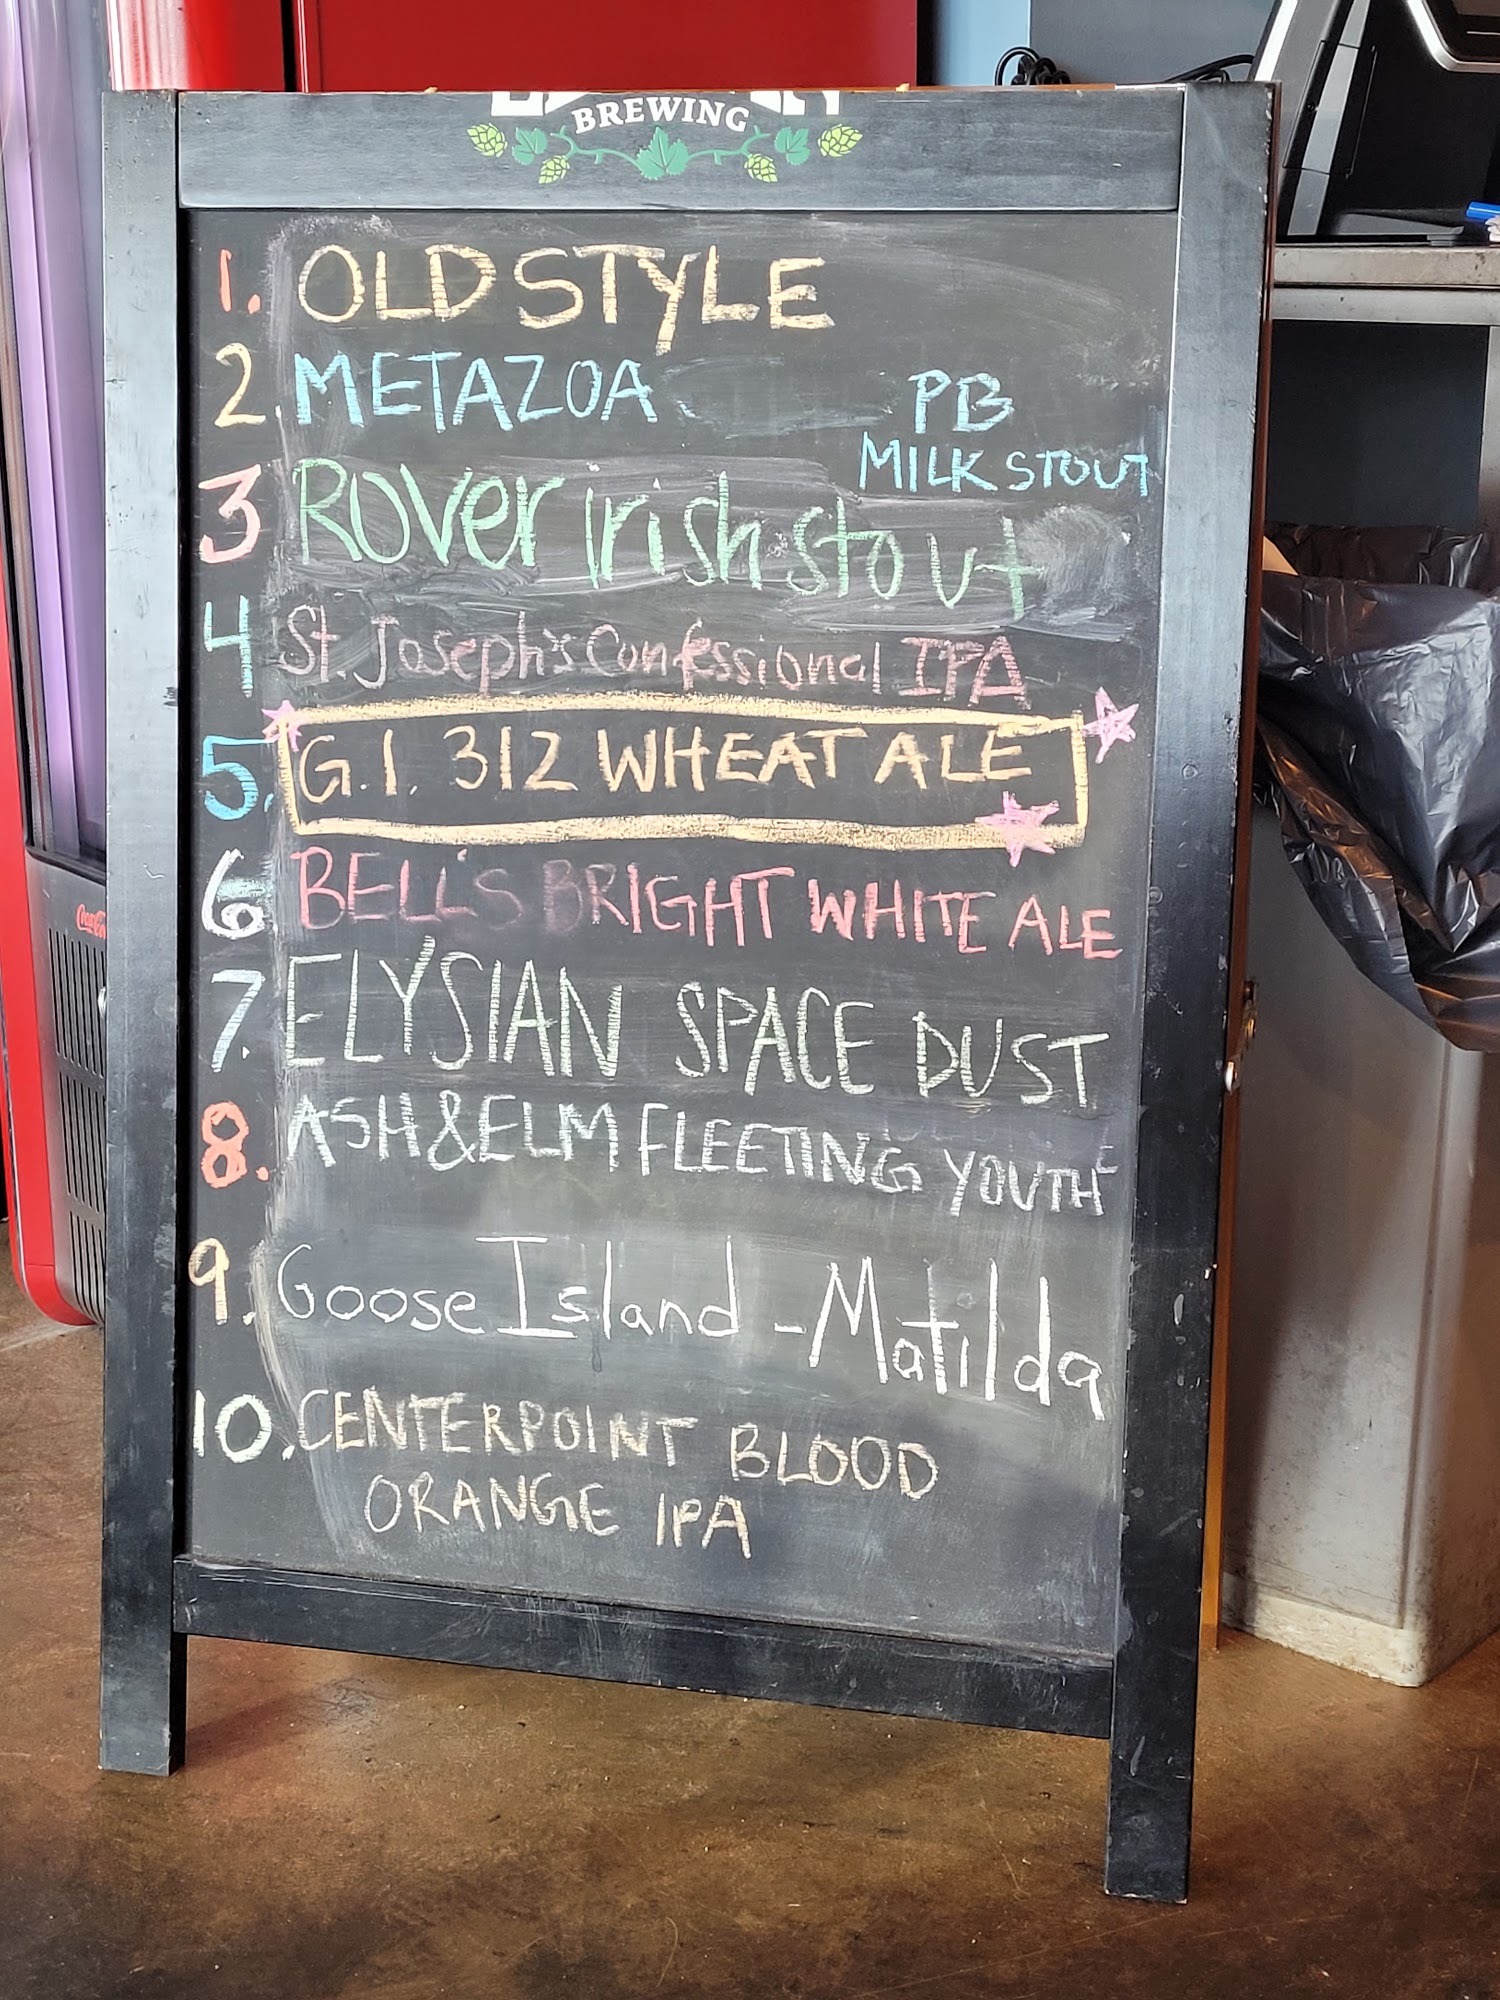 BREWING
1. OLD STYLE
2. METAZOA PB
MILK STOUT
3 Rover irish stout
4 St. Joseph's Confessional IPA
5. G.I. 312 WHEAT ALE
6 BELL'S BRIGHT WHITE ALE
7. ELYSIAN SPACE DUST
8. ASH & ELM FLEETING YOUTH
9. Goose Island - Matilda
10. CENTERPOINT BLOOD
ORANGE IPA
Coca-Cola